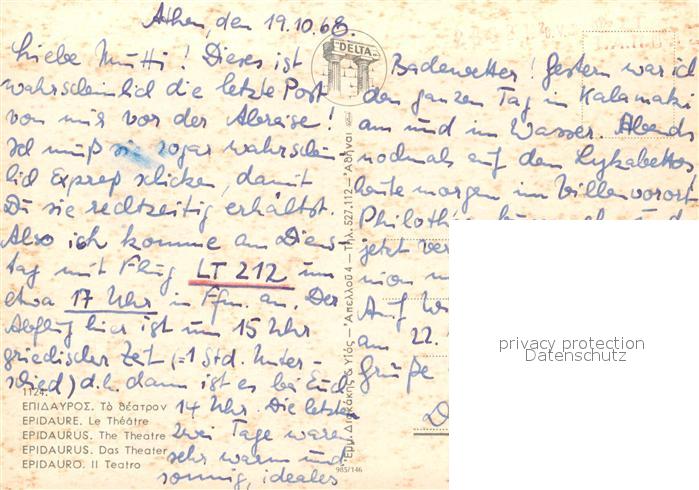 Athen, den 19.10.68.
Liebe Mutti! Dieses ist
wahrscheinlich die letzte Post
von mir vor der Abreise!
Ich muß sie sogar wahrschein
lich Expreß schicken, damit
Du sie rechtzeitig erhältst.
Also ich komme am Diens-
tag mit Flug LT 212 um
etwa 17 Uhr in Ffm. an. Der
Abflug hier ist um 15 Uhr
griechischer Zeit (=1 Std. Unter-
schied) d.h. dann ist es bei Euch
14 Uhr. Die letzten
zwei Tage waren
sehr warm und
sonnig, ideales
Badewetter! Gestern war ich
den ganzen Tag in Kalamaki
am und im Wasser. Abends
nochmals auf dem Lykabettos,
heute morgen im Villenvorort
Philothei
jetzt
Auf W
am 22.
Grüße
D
DELTA
1124.
ΕΠΙΔΑΥΡΟΣ. Τὸ θέατρον
EPIDAURE. Le Théâtre
EPIDAURUS. The Theatre
EPIDAURUS. Das Theater
EPIDAURO. Il Teatro
Ἑρμ. Δισκάκης & Υἱός – Ἀπελλοῦ 4 – Τηλ. 527.112 – Ἀθῆναι
985/146
privacy protection
Datenschutz